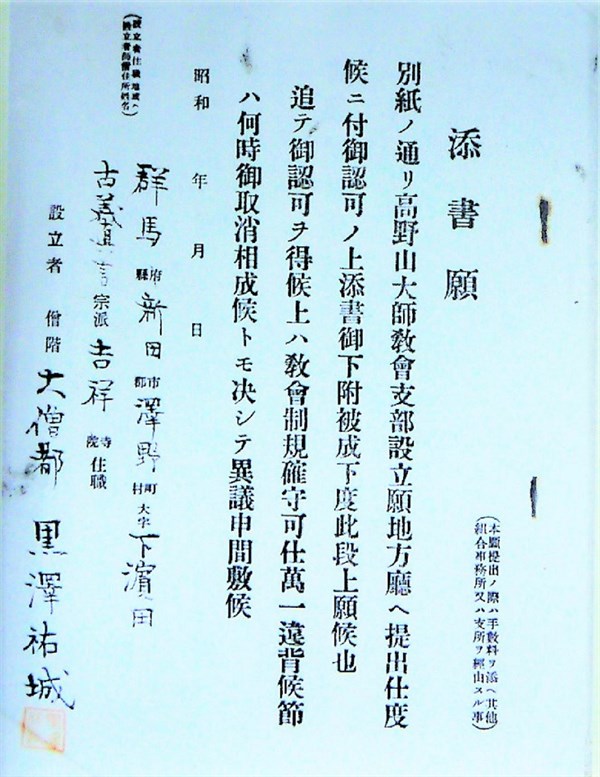 添書願
（本願提出ノ際ハ手數料ヲ添ヘ其他
組合事務所又ハ支所ヲ經由スル事）
別紙ノ通リ高野山大師敎會支部設立願地方廳ヘ提出仕度
候ニ付御認可ノ上添書御下附被成下度此段上願候也
追テ御認可ヲ得候上ハ敎會制規確守可仕萬一違背候節
ハ何時御取消相成候トモ決シテ異議申間敷候
昭和　年　月　日
群馬府縣新田市郡澤野町村大字下濱田
古義真言宗派吉祥寺院住職
設立者　僧階　大僧都　黒澤祐城